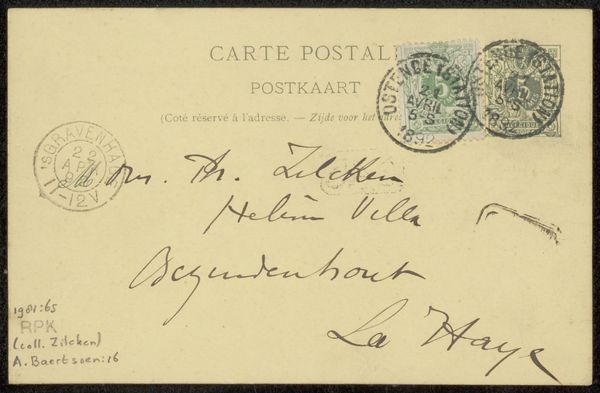 CARTE POSTALE
POSTKAART
(Coté réservé à l'adresse. — Zijde voor het adres
OSTENDE (STATION)
21
AVRIL
5-S
1892
OSTENDE (STATION)
AVRIL
5-S
1892
5
5
BELGIQUE
'SGRAVENHAGE
22
APR
11-12V
Mr. Ph. Zilcken
Helène Villa
Bezuidenhout
La Haye
1981:65
RPK
(coll. Zilcken)
A. Baertsoen:16